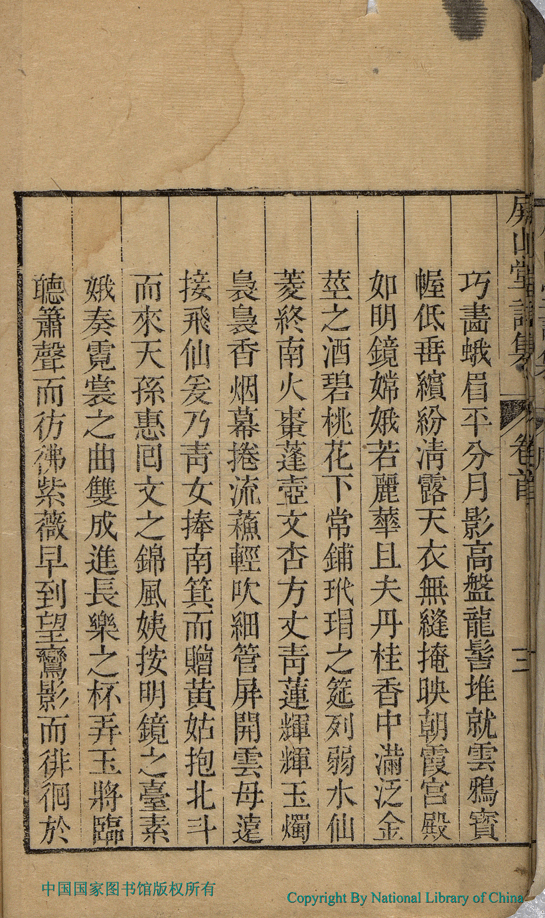 屏山堂詩集
卷首
三
巧畵蛾眉平分月影高盤龍髻堆就雲鴉寳
幄低垂繽紛清露天衣無縫掩映朝霞宮殿
如明鏡嫦娥若麗華且夫丹桂香中滿泛金
莖之酒碧桃花下常鋪玳瑁之筵列弱水仙
菱終南火棗蓬壺文杏方丈靑蓮輝輝玉燭
裊裊香烟幕捲流蘓輕吹細管屏開雲母遠
接飛仙爰乃靑女捧南箕而贈黃姑抱北斗
而來天孫惠囘文之錦風姨按明鏡之臺素
娥奏霓裳之曲雙成進長樂之杯弄玉將臨
聽簫聲而彷彿紫薇早到望鸞影而徘徊於
中国国家图书馆版权所有
Copyright By National Library of China